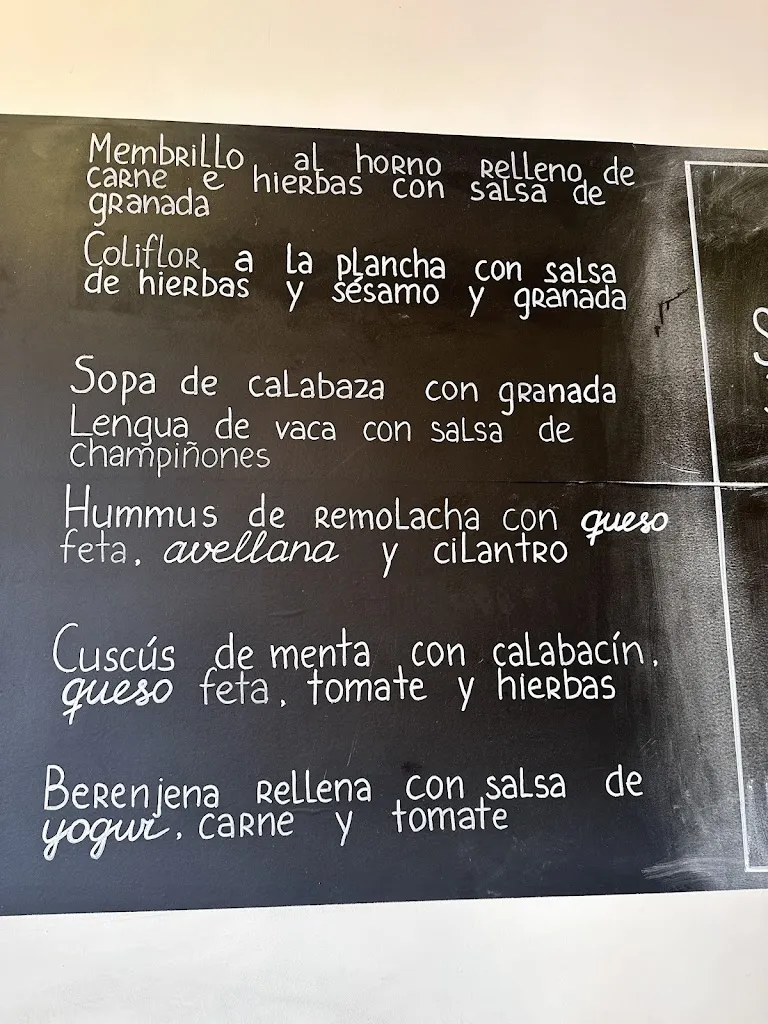 Membrillo al horno relleno de
carne e hierbas con salsa de
granada
Coliflor a la plancha con salsa
de hierbas y sésamo y granada
Sopa de calabaza con granada
Lengua de vaca con salsa de
champiñones
Hummus de remolacha con queso
feta, avellana y cilantro
Cuscús de menta con calabacín,
queso feta, tomate y hierbas
Berenjena rellena con salsa de
yogur, carne y tomate